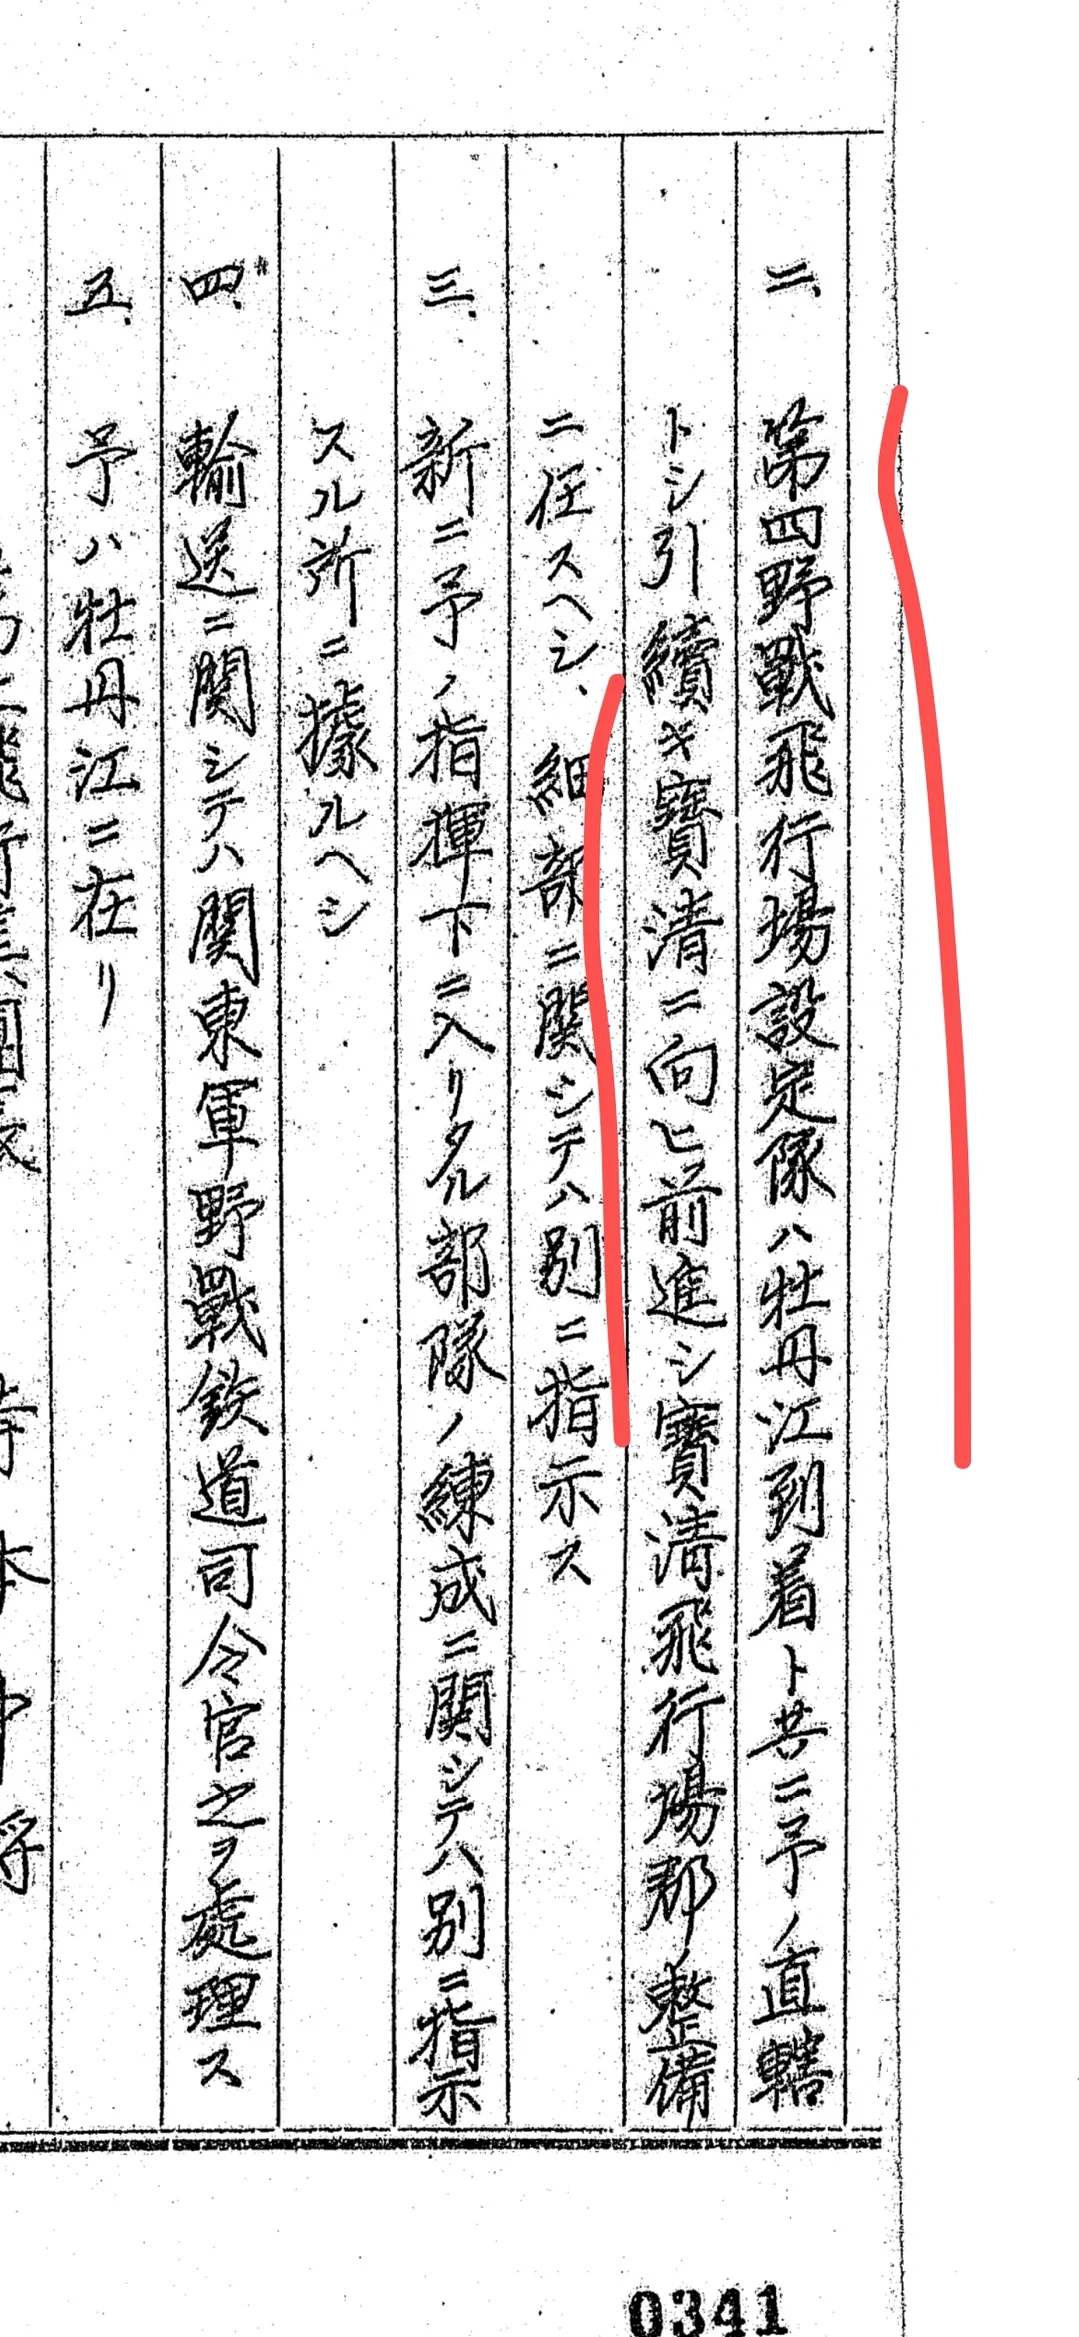 二、第四野戰飛行場設定隊ハ牡丹江到着ト共ニ予ノ直轄
トシ引續キ寶清ニ向ヒ前進シ寶淸飛行場郡ノ整備
ニ任スヘシ、細部ニ関シテハ別ニ指示ス
三、新ニ予ノ指揮下ニ入リタル部隊ノ練成ニ関シテハ別ニ指示
スル所ニ據ルヘシ
四、輸送ニ関シテハ関東軍野戰鉄道司令官之ヲ處理ス
五、予ハ牡丹江ニ在リ
0341